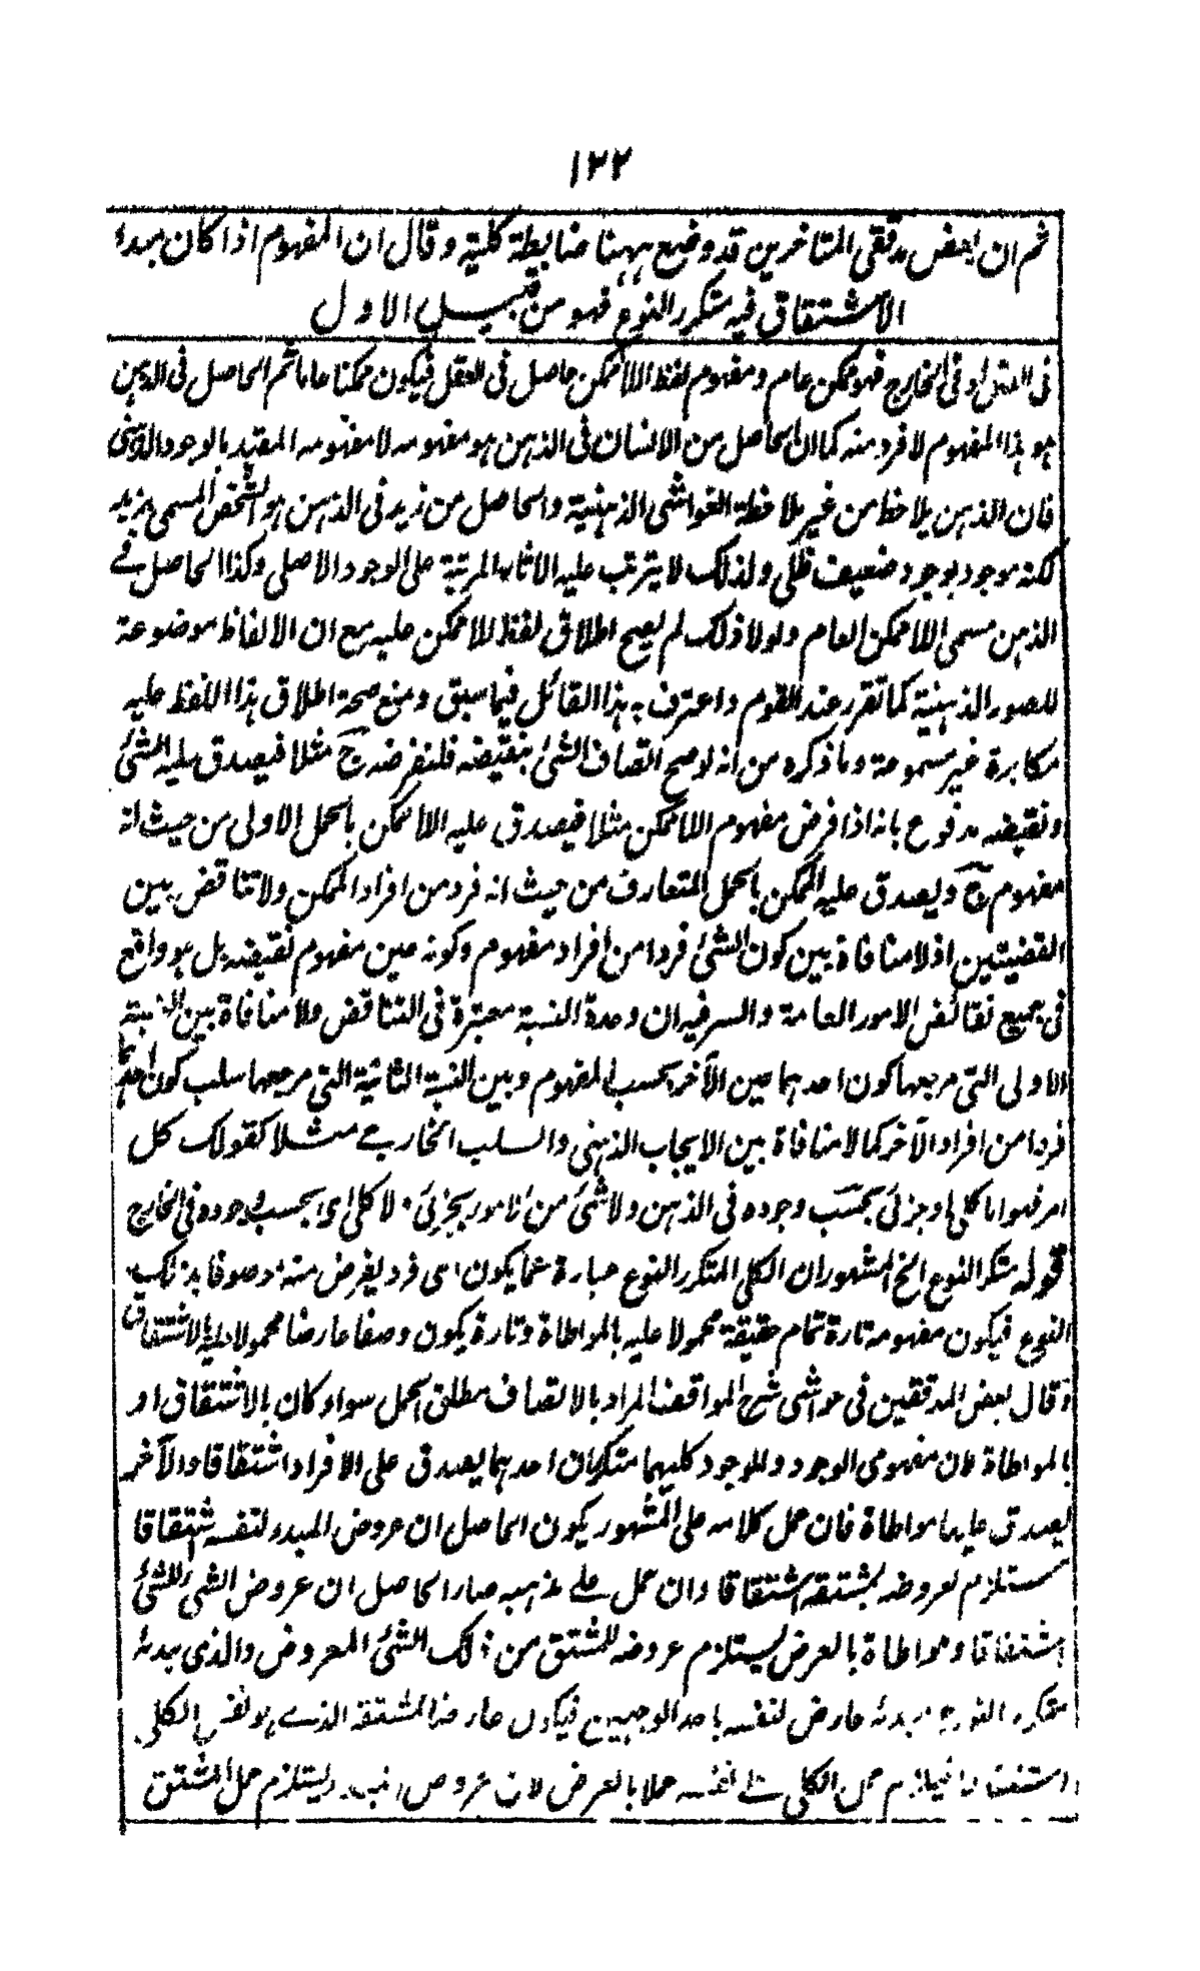 ١٢٢
ثم ان بعض مدققی المتاخرین قد وضع ههنا ضابطة کلیة وقال ان المفهوم اذا کان مبدا
الاشتقاق فیه متکرر النوع فهو من قبیل الاول
فی العقل او فی الخارج فهو ممکن عام ومفهوم لفظ اللاممکن حاصل فی العقل فیکون ممکنا عاما ثم الحاصل فی الذهن
هو هذا المفهوم لا فرد منه کما ان الحاصل من الانسان فی الذهن هو مفهومه لا مفهومه المقید بالوجود الذهنی
فان الذهن یلاحظ من غیر ملاحظة الغواشی الذهنیة والحاصل من زید فی الذهن هو الشخص المسمی بزید
لکنه موجود بوجود ضعیف ظلی ولذلک لا یترتب علیه الاثار المرتبة علی الوجود الاصلی وکذا الحاصل فی
الذهن مسمی اللاممکن العام ولولا ذلک لم یصح اطلاق لفظ اللاممکن علیه مع ان الالفاظ موضوعة
للصور الذهنیة کما تقرر عند القوم واعترف به هذا القائل فیما سبق ومنع صحة اطلاق هذا اللفظ علیه
مکابرة غیر مسموعة وما ذکره من انه لو صح اتصاف الشئ بنقیضه فلنفرضه ج مثلا فیصدق علیه الشئ
ونقیضه مدفوع بانه اذا فرض مفهوم اللاممکن مثلا فیصدق علیه اللاممکن بالحمل الاولی من حیث انه
مفهوم ج ویصدق علیه الممکن بالحمل المتعارف من حیث انه فرد من افراد الممکن ولا تناقض بین
القضیتین اذ لا منافاة بین کون الشئ فردا من افراد مفهوم وکونه عین مفهوم نقیضه بل هو واقع
فی جمیع نقائض الامور العامة والسر فیه ان وحدة النسبة معتبرة فی التناقض ولا منافاة بین النسبة
الاولی التی مرجعها کون احدهما عین الآخر بحسب المفهوم وبین النسبة الثانیة التی مرجعها سلب کون احدهما
فردا من افراد الآخر کما لا منافاة بین الایجاب الذهنی والسلب الخارجی مثلا کقولک کل
امر فهو اما کلی او جزئی بحسب وجوده فی الذهن ولا شئ من الامور بجزئی لا کلی ای بحسب وجوده فی الخارج
قوله متکرر النوع الخ المشهور ان الکلی المتکرر النوع عبارة عما یکون ای فرد یفرض منه موصوفا بذلک
النوع فیکون مفهومه تارة تمام حقیقة محمولا علیه بالمواطاة وتارة یکون وصفا عارضا محمولا علیه بالاشتقاق
وقال بعض المدققین فی حواشی شرح المواقف المراد بالاتصاف مطلق الحمل سواء کان بالاشتقاق او
بالمواطاة لان مفهومی الوجود والموجود کلیهما متکرران احدهما یصدق علی الافراد اشتقاقا والآخر
یصدق علیها مواطاة فان حمل کلامه علی المشهور یکون الحاصل ان عروض المبدء لنفسه اشتقاقا
مستلزم لعروضه لمشتقه اشتقاقا وان حمل علی مذهبه صار الحاصل ان عروض الشئ للشئ
اشتقاقا ومواطاة بالعرض لیستلزم عروضه للمشتق من ذلک الشئ المعروض والذی مبدئه
متکرر النوع مبدئه عارض لنفسه باحد الوجهین فیکون عارضا لمشتقه الذی هو نفس الکلی
اشتقاقا فیلزم حمل الکلی علی نفسه حملا بالعرض لان عروض یستلزم حمل المشتق